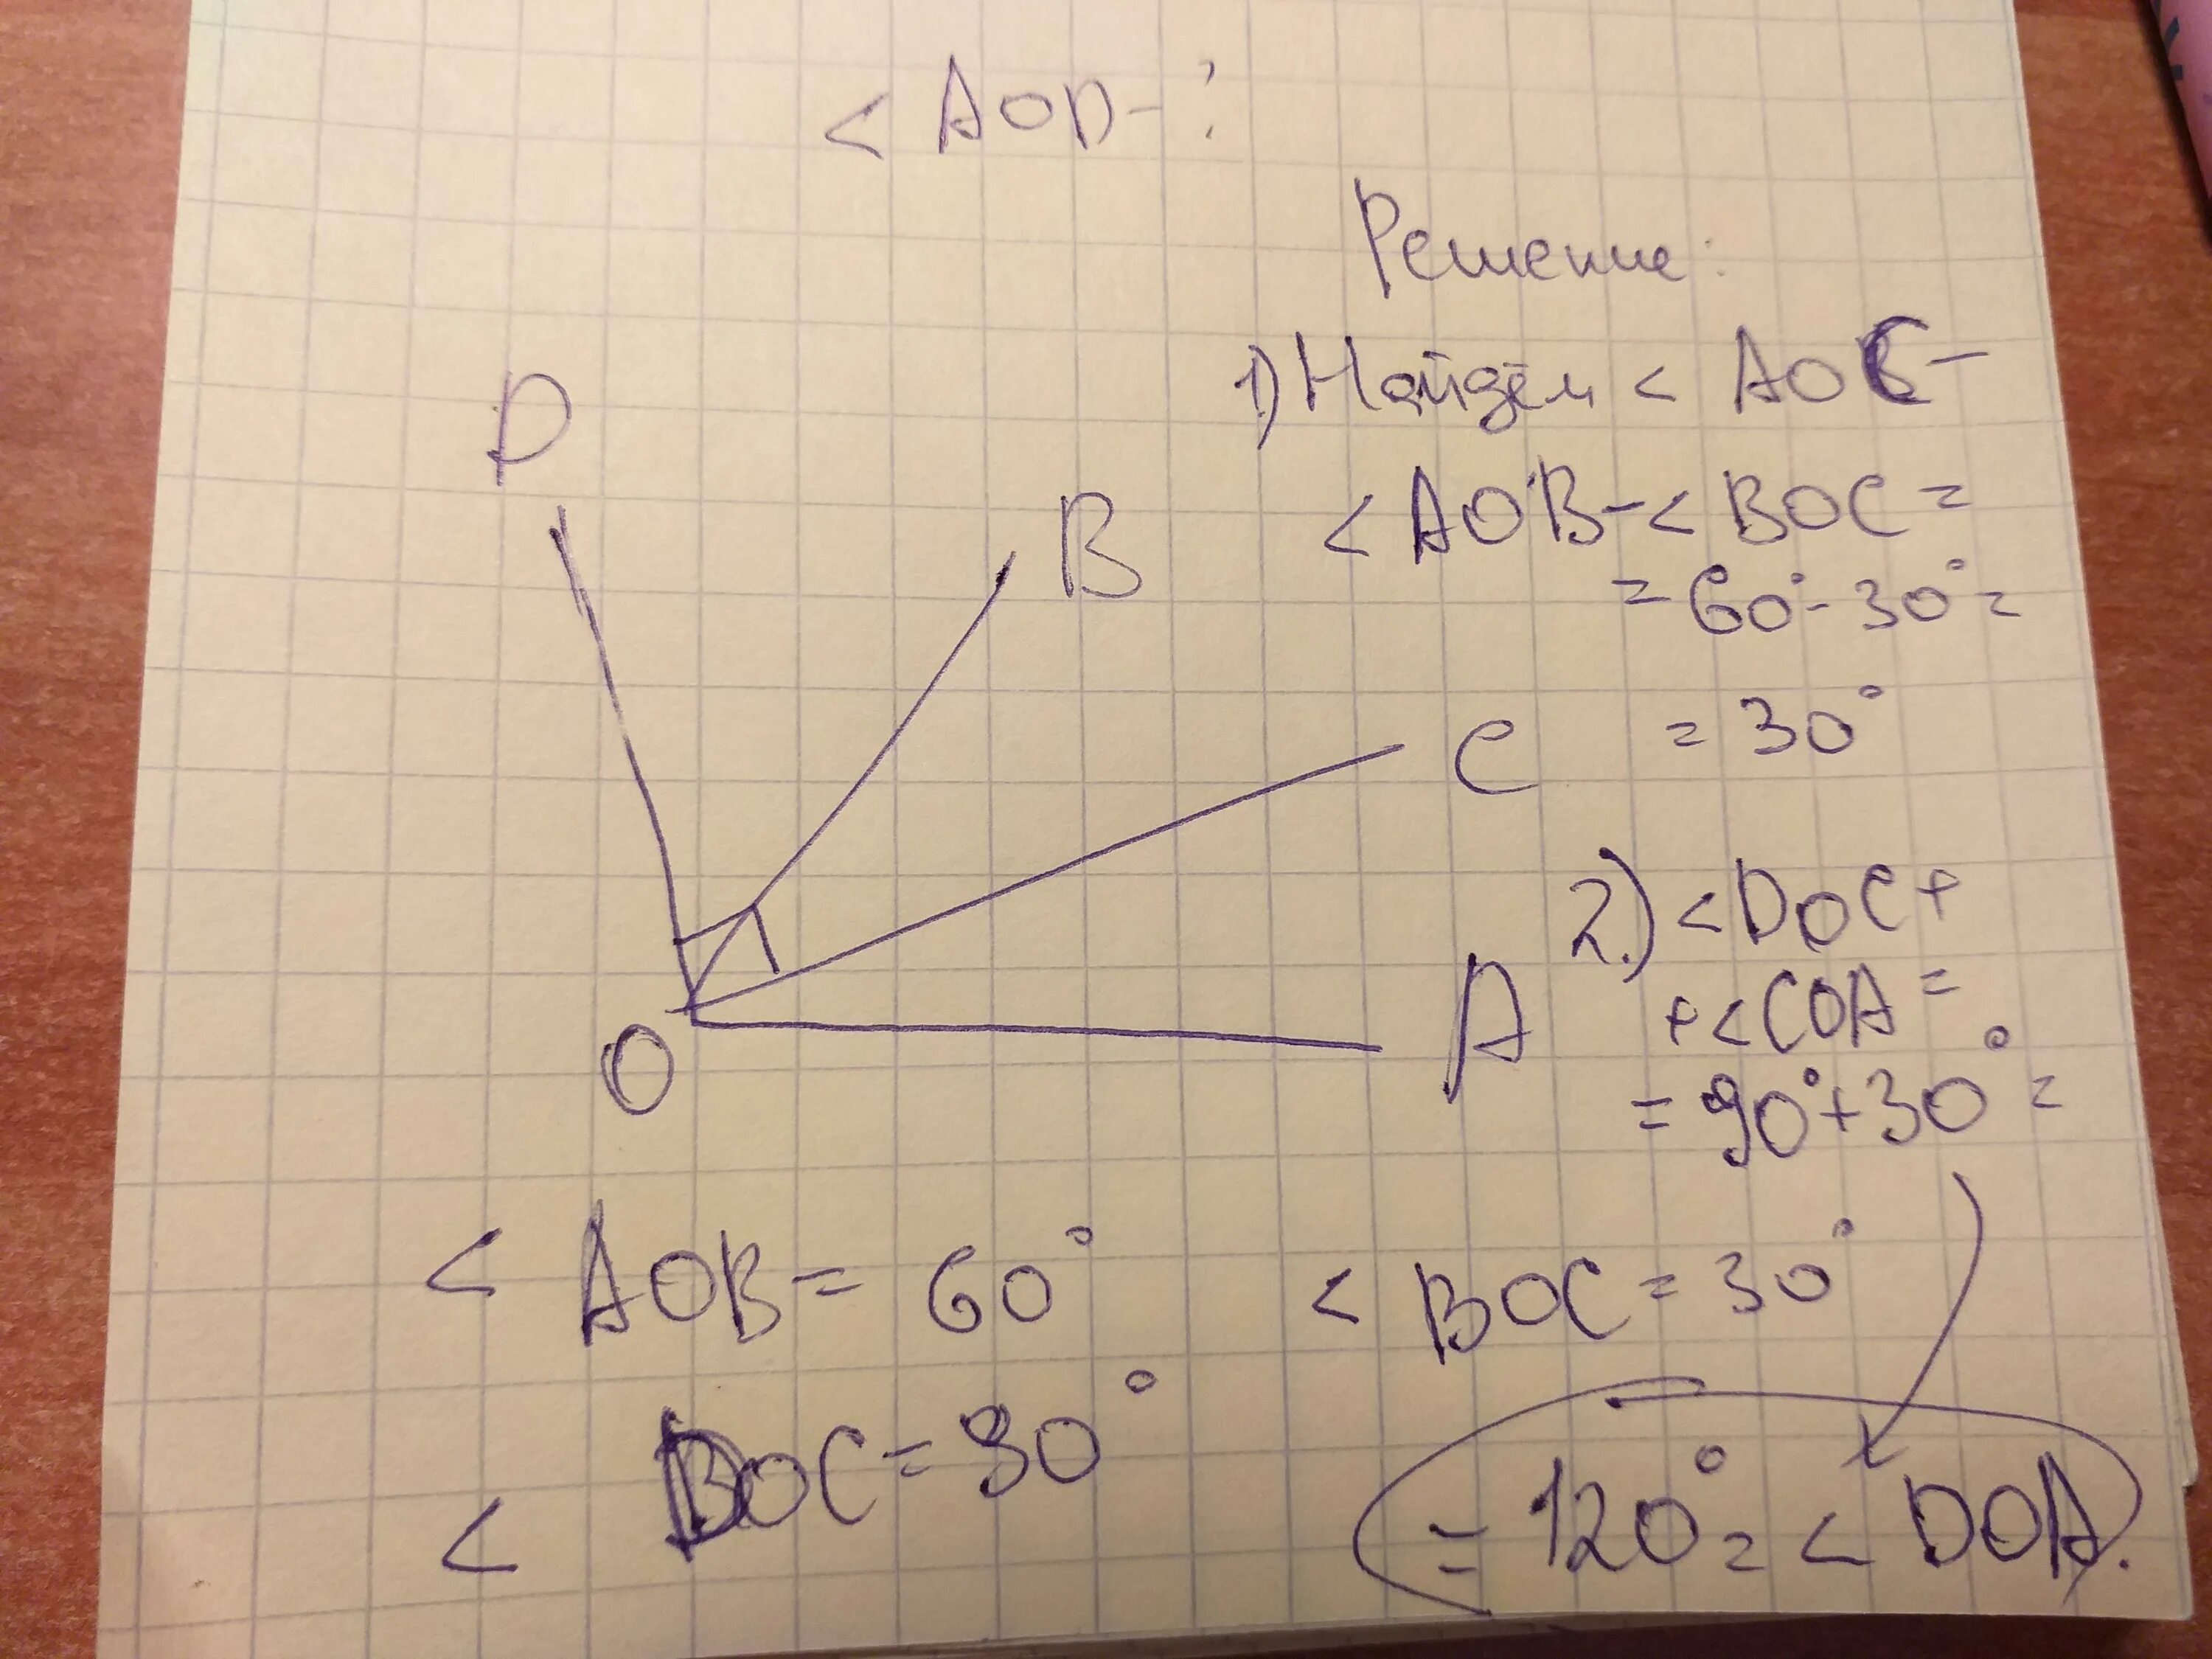 < AOD - ?
Решение:
1) Найдём < AOC -
< AOB - < BOC =
= 60° - 30° =
= 30°
D
B
C
A
O
2.) < DOC +
+ < COA =
= 90° + 30° =
< AOB = 60°
< BOC = 30°
< DOC = 90°
= 120° = < DOA.